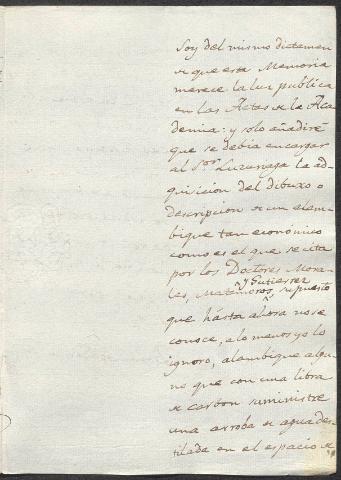 Soy del mismo dictamen
de que esta Memoria
merece la luz publica
en las Actas de la Aca
demia: y solo añadiré
que se debia encargar
al Sor. Luzuriaga la ad-
quisicion del dibuxo o
descripcion de un alam-
bique tan economico
como es el que se cita
por los Doctores Mora-
les, Matamoros, y Gutierrez supuesto
que hásta ahora no se
conoce, a lo menos yo lo
ignoro, alambique algu-
no que con una libra
de carbon suministre
una arroba de agua des-
tilada en el espacio de